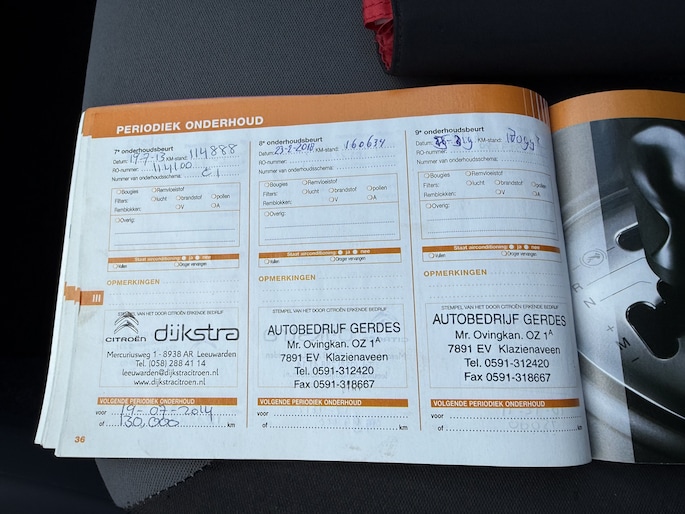 PERIODIEK ONDERHOUD
7e onderhoudsbeurt
Datum: 19-7-13 KM-stand: 114888
RO-nummer: 114100
Nummer van onderhoudsschema: C1
Bougies Remvloeistof
Filters: lucht brandstof pollen
Remblokken: V A
Overig:
Staat airconditioning: ja nee
Vullen Droger vervangen
OPMERKINGEN
STEMPEL VAN HET DOOR CITROËN ERKENDE BEDRIJF
CITROËN dijkstra
Mercuriusweg 1 - 8938 AR Leeuwarden
Tel. (058) 288 41 14
leeuwarden@dijkstracitroen.nl
www.dijkstracitroen.nl
VOLGENDE PERIODIEK ONDERHOUD
voor 19-07-2014
of 130,000 km
8e onderhoudsbeurt
Datum: 23-2-2018 KM-stand: 160634
RO-nummer:
Nummer van onderhoudsschema:
Bougies Remvloeistof
Filters: lucht brandstof pollen
Remblokken: V A
Overig:
Staat airconditioning: ja nee
Vullen Droger vervangen
OPMERKINGEN
STEMPEL VAN HET DOOR CITROËN ERKENDE BEDRIJF
AUTOBEDRIJF GERDES
Mr. Ovingkan. OZ 1A
7891 EV Klazienaveen
Tel. 0591-312420
Fax 0591-318667
VOLGENDE PERIODIEK ONDERHOUD
voor
of km
9e onderhoudsbeurt
Datum: KM-stand:
RO-nummer:
Nummer van onderhoudsschema:
Bougies Remvloeistof
Filters: lucht brandstof pollen
Remblokken: V A
Overig:
Staat airconditioning: ja nee
Vullen Droger vervangen
OPMERKINGEN
STEMPEL VAN HET DOOR CITROËN ERKENDE BEDRIJF
AUTOBEDRIJF GERDES
Mr. Ovingkan. OZ 1A
7891 EV Klazienaveen
Tel. 0591-312420
Fax 0591-318667
VOLGENDE PERIODIEK ONDERHOUD
voor
of km
III
36
R
N
M
+